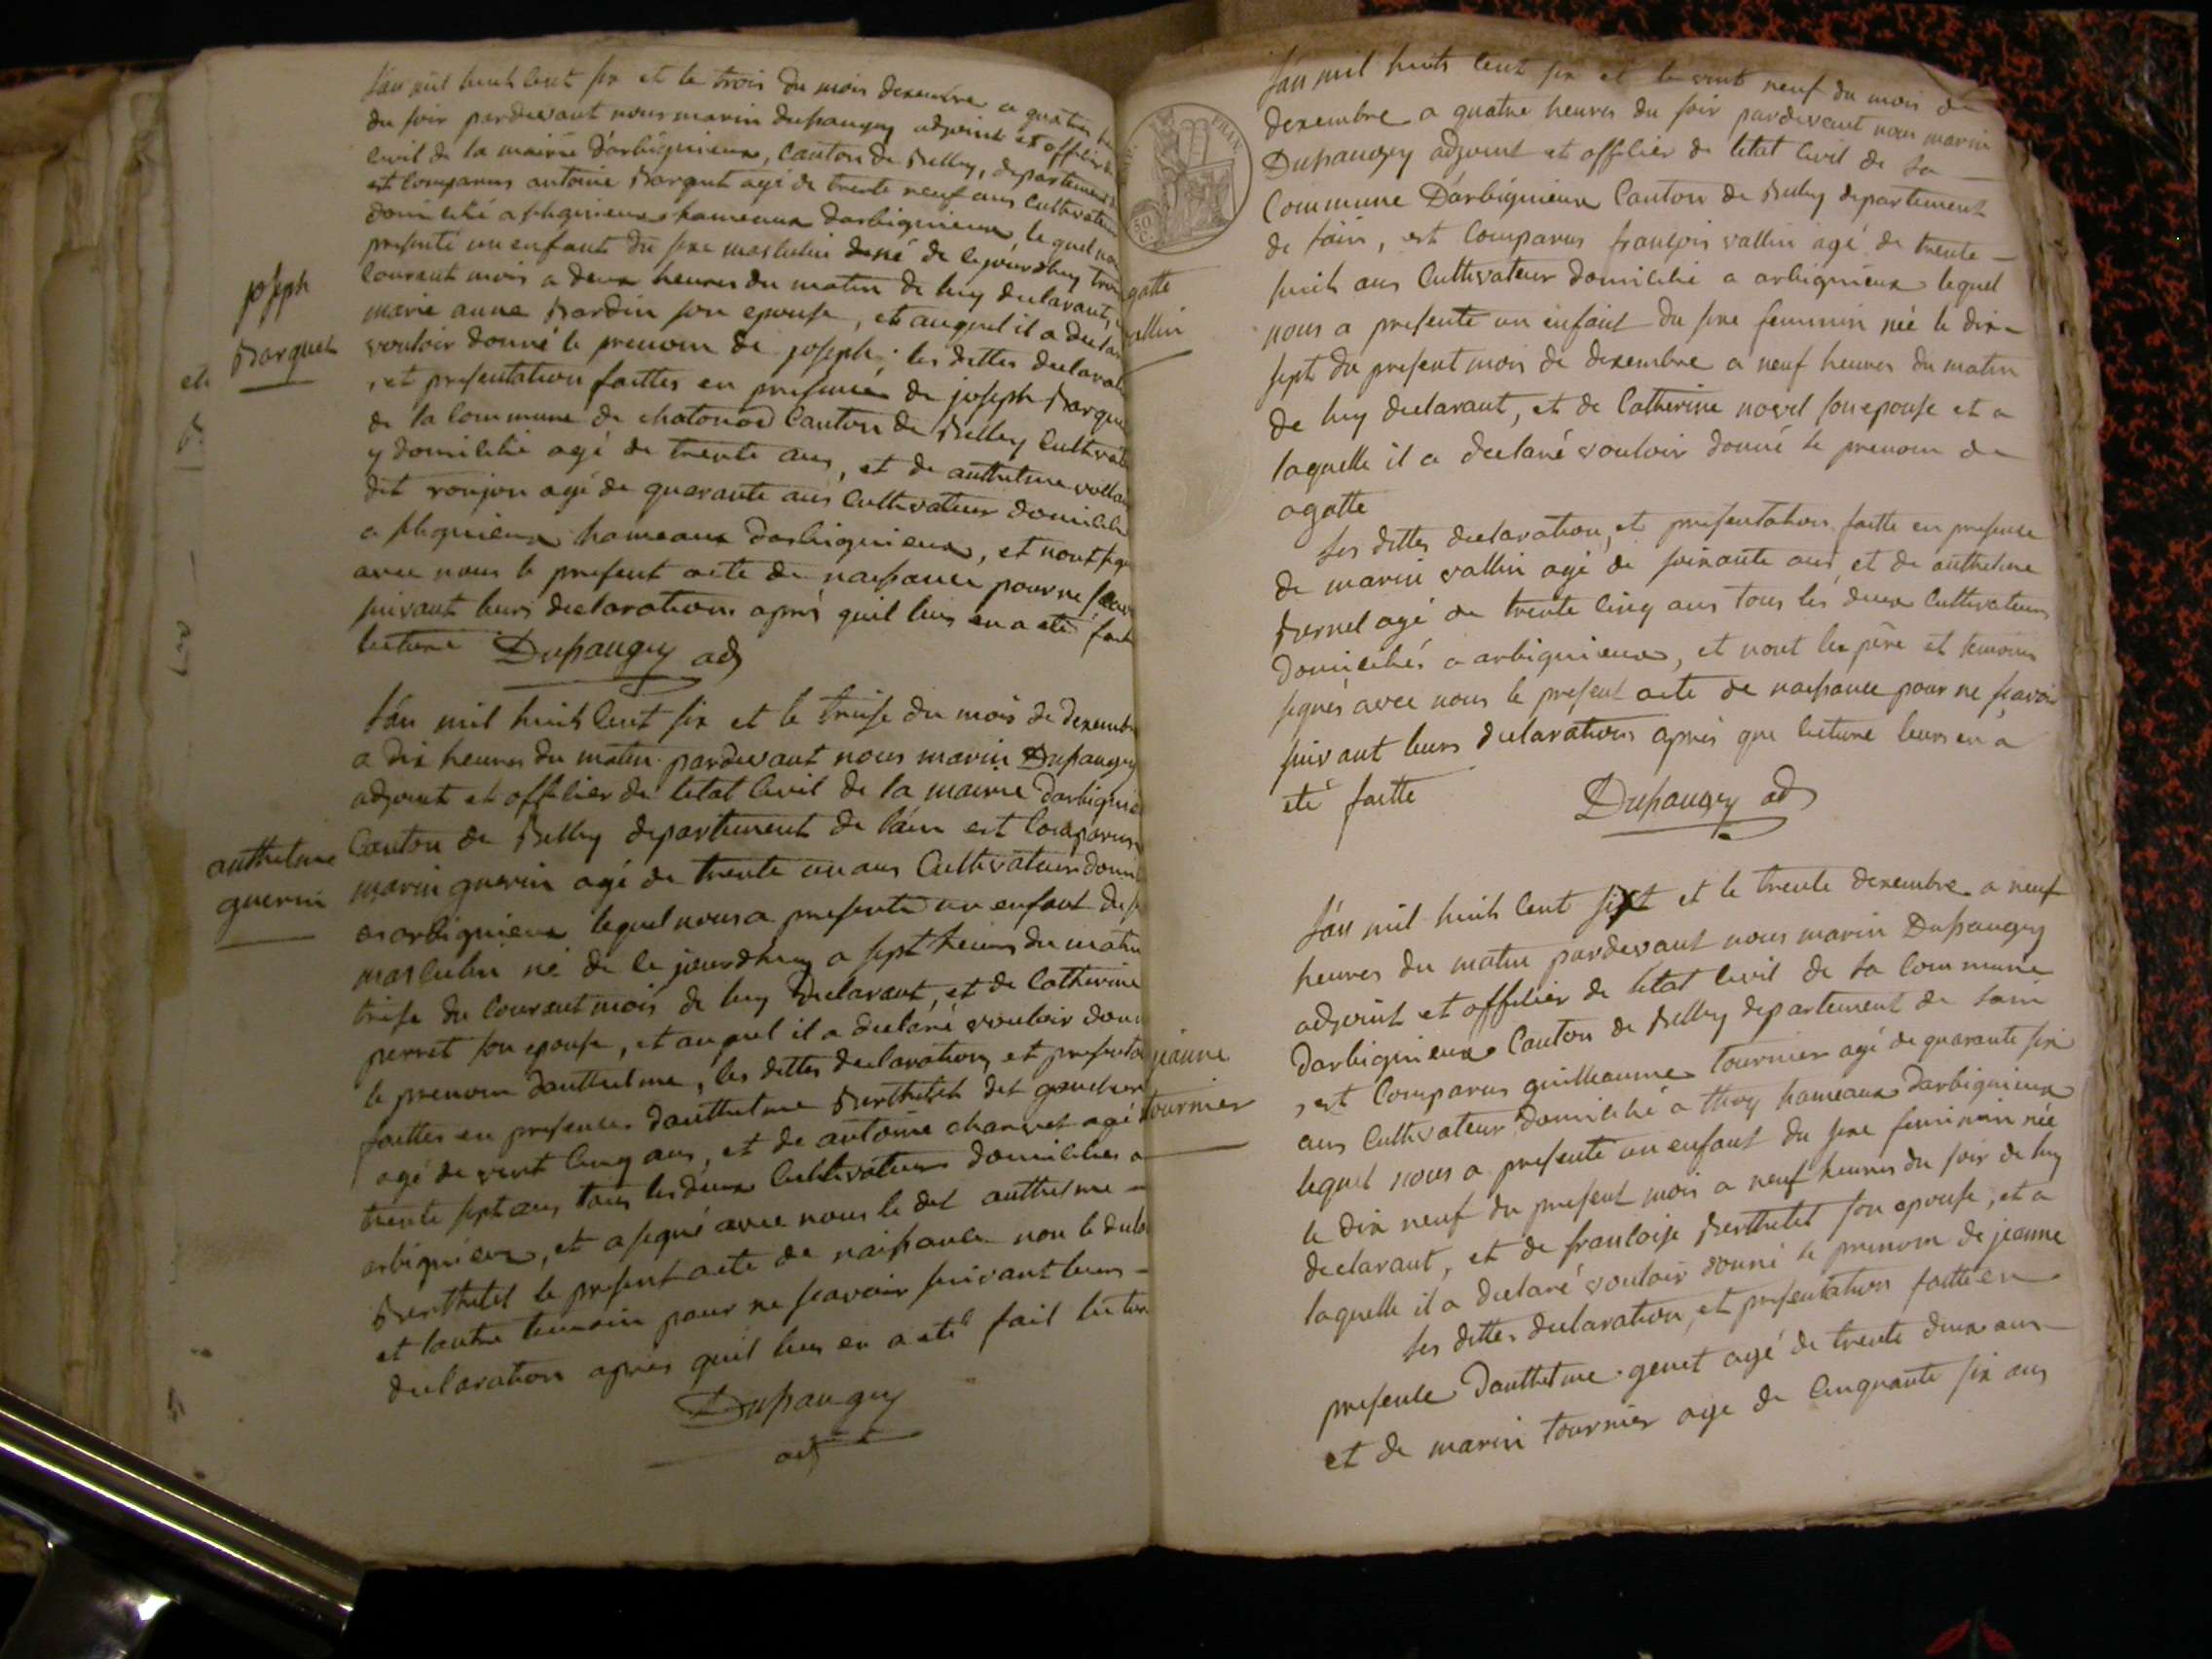 joseph
Barquet
lán mil huit Cent six et le trois du mois dexembre a quatre
du soir pardevant nous marin dupaugey adjoint et officier
Civil de la mairie d'arbignieux, Canton de Belley, departement
est Comparus antoine Barquet agé de trente neuf ans Cultivateur
domicilié a hameaux darbignieux, lequel nous
presenté un enfant du sexe masculin né de cejourdhuy trois
Courant mois a deux heures du matin de luy declarant,
marie anne Bardin son epouse, et auquel il a declaré
vouloir donné le prenom de joseph; les dittes declaration
, et presentation faittes en presence de joseph Barquet
de la Commune de Chatonod Canton de Belley Cultivateur
y domicilié agé de trente ans, et de anthelme
dit ronjon agé de quarante ans Cultivateur domicilié
a hameaux darbignieux, et nont signé
avec nous le present acte de naissance pour ne
suivant leurs declarations après quil leurs en a eté fait
lecture Dupaugey adj
lán mil huit Cent six et le treise du mois de dexembre
a dix heures du matin pardevant nous marin Dupaugey
adjoint et officier de letat Civil de la mairie darbignieux
Canton de Belley departement de láin est Comparus
anthelme
guerin
marin guerin agé de trente un ans Cultivateur
a arbignieux lequel nous a presenté un enfant du
masculin né de ce jourdhuy a sept heures du matin
treise du Courant mois de luy declarant, et de Catherine
perret son epouse, et auquel il a declaré vouloir donné
le prenom danthelme, les dittes declaration, et presentation
faittes en presences danthelme Berthelet dit
agé de vint Cinq ans, et de antoine charvet agé
trente sept ans tous les deux Cultivateurs domiciliés a
arbignieux, et a signé avec nous le dit anthelme
Berthelet le present acte de naissance non le
et lautre temoin pour ne scavoir suivant leurs
declaration après quil leur en a eté fait lecture
Dupaugey
adj
lán mil huit Cent six et le vint neuf du mois de
dexembre a quatre heures du soir pardevant nous marin
Dupaugey adjoint et officier de letat Civil de la
Commune D'arbignieux Canton de Belley departement
de láin, est Comparus françois vallin agé de trente
huit ans Cultivateur domicilié a arbignieux lequel
gatte
vallin
nous a presenté un enfant du sexe feminin née le dix
sept du present mois de dexembre a neuf heures du matin
de luy declarant, et de Catherine novel son epouse et a
laquelle il a declaré vouloir donné le prenom de
agatte
les dittes declaration, et presentation faitte en presence
de marin vallin agé de soixante ans et de anthelme
agé de trente Cinq ans tous les deux Cultivateurs
domiciliés a arbignieux, et nont les père et temoins
signés avec nous le present acte de naissance pour ne sçavoir
suivant leurs declarations après que lecture leurs en a
eté faitte
Dupaugey adj
lán mil huit Cent sixt et le trente dexembre a neuf
heures du matin pardevant nous marin Dupaugey
adjoint et officier de létat Civil de la Commune
Darbignieux Canton de Belley departement de láin
jeanne
tournier
, est Comparus guilleaume tournier agé de quarante six
ans Cultivateur domicilié a thoy hameaux darbignieux
lequel nous a presenté un enfant du sexe feminin née
le dix neuf du present mois a neuf heures du soir de luy
declarant, et de françoise Berthelet son epouse, et a
laquelle il a declaré vouloir donné le prenom de jeanne
les dittes declaration, et presentation faitte en
presence danthelme genet agé de trente deux ans
et de marin tournier age de Cinquante six ans